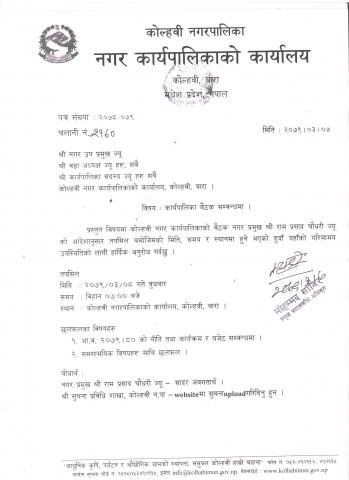 कोल्हवी नगरपालिका
नगर कार्यपालिकाको कार्यालय
कोल्हवी, बारा
मधेश प्रदेश, नेपाल
पत्र संख्या : २०७८.०७९
चलानी नं.:२१६०
मिति : २०७९।०३।०७
श्री नगर उप प्रमुख ज्यू
श्री वडा अध्यक्ष ज्यू हरु, सबै
श्री कार्यपालिका सदस्य ज्यू हरु सबै
कोल्हवी नगर कार्यपालिकाको कार्यालय, कोल्हवी, बारा ।
विषय : कार्यपालिका बैठक सम्बन्धमा ।
प्रस्तुत विषयमा कोल्हवी नगर कार्यपालिकाको बैठक नगर प्रमुख श्री राम प्रसाद चौधरी ज्यू
को आदेशानुसार तपसिल बमोजिमको मिति, समय र स्थानमा हुने भएको हुदाँ यहाँको गरिमामय
उपस्थितिको लागी हार्दिक अनुरोध गर्दछु ।
तपसिल
मिति : २०७९/०३/०८ गते बुधवार
समय : बिहान ०७:०० बजे
स्थान : कोल्हवी नगरपालिकाको कार्यालय, कोल्हवी, बारा ।
प्रमुख प्रशासकीय अधिकृत
छलफलका विषयहरु
१. आ.व. २०७९।८० को नीति तथा कार्यक्रम र बजेट सम्बन्धमा ।
२. समसामयिक विषयहरु माथि छलफल ।
बोधार्थ :
नगर प्रमुख श्री राम प्रसाद चौधरी ज्यू – सादर अवगतार्थ ।
श्री सुचना प्रविधि शाखा, कोल्हवी न.पा – websiteमा सुचनाuploadगरिदिनु हुन ।
"आधुनिक कृषि, पर्यटन र औद्योगिक ग्रामको स्थापना, समुन्नत कोल्हवी हाम्रो चाहना"
इमेल info@kolhabimun.gov.np, वेबसाइट : www.kolhabimun.gov.np